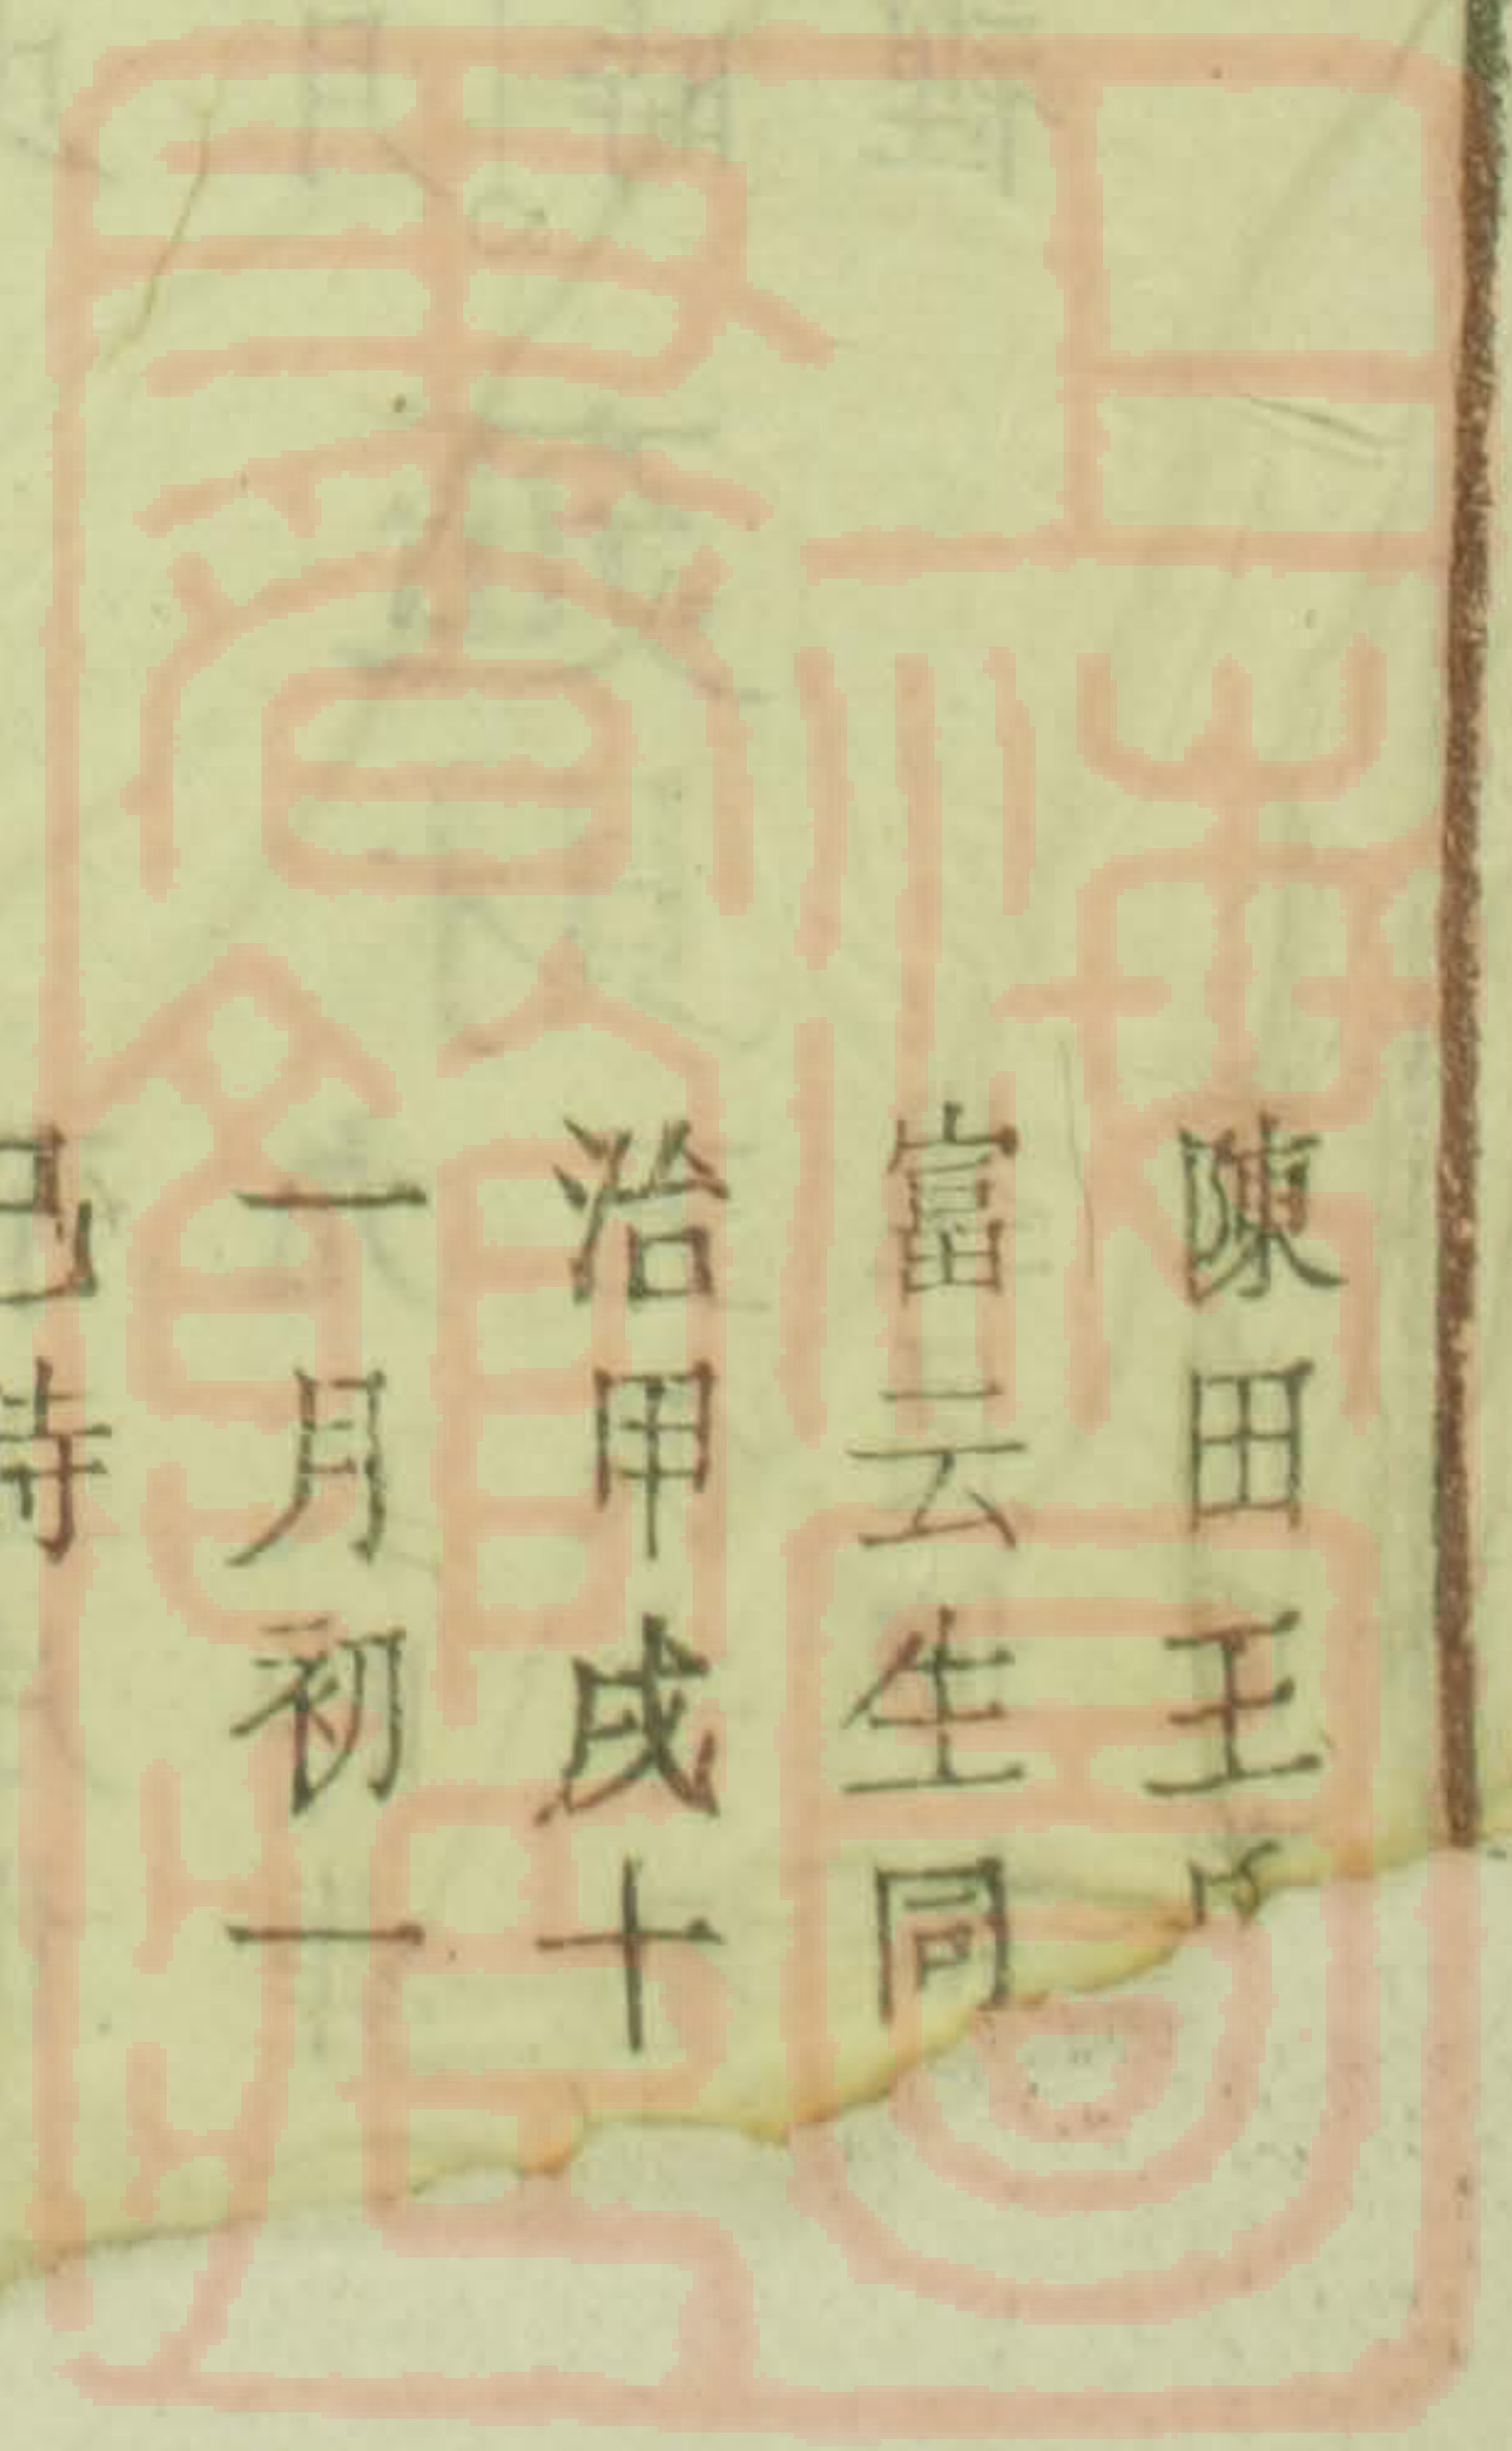 陳田王
富云生同
治甲戌十
一月初一
巳時